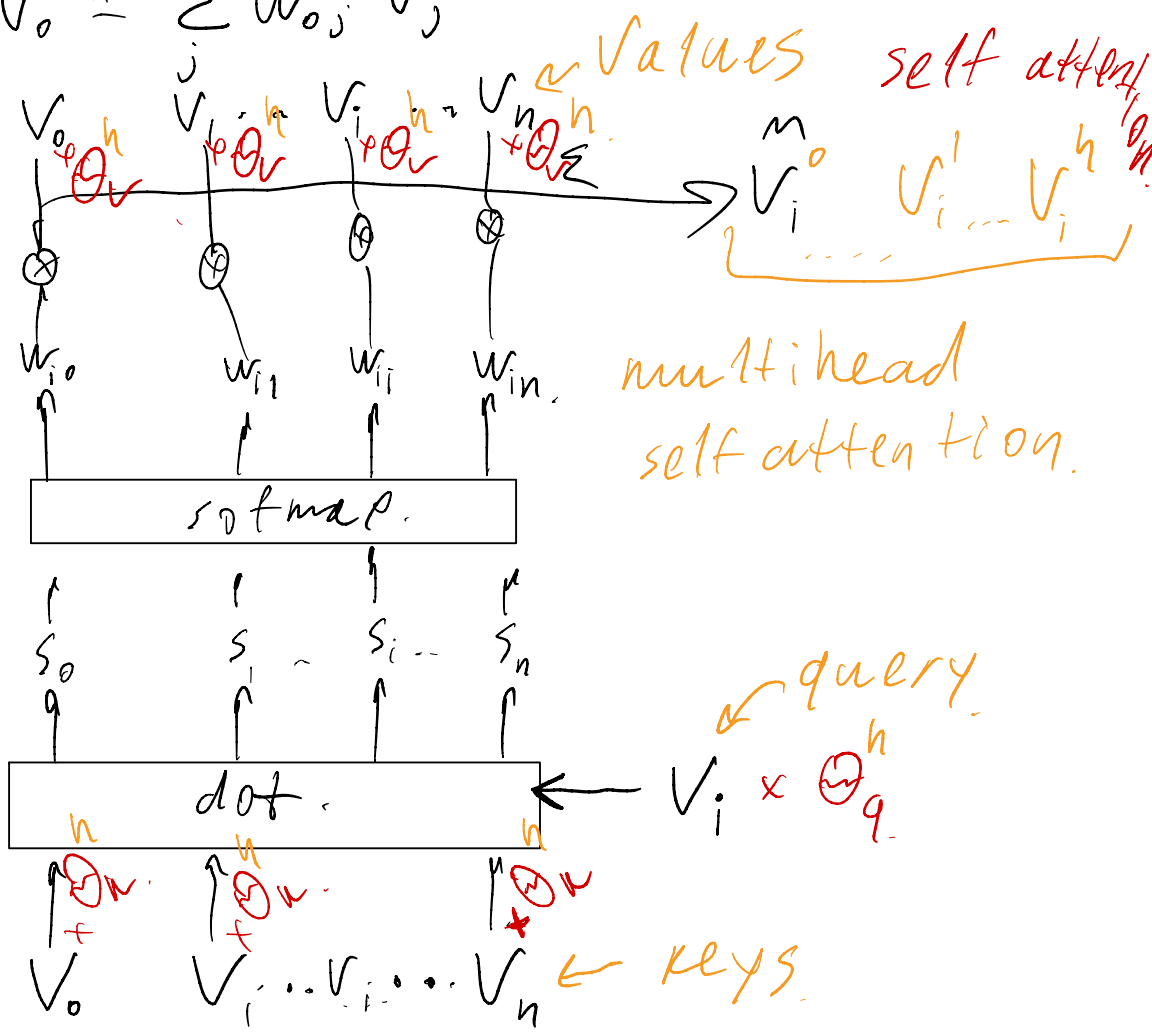 V₀ = Σ W₀ⱼ Vⱼ
j
values
self attention
V₀ V₁ .. Vᵢ .. Vₙ
×Θᵥʰ ×Θᵥʰ ×Θᵥʰ ×Θᵥʰ Σ
Vᵢ⁰ Vᵢ¹ .... Vᵢʰ
.....
Wᵢ₀ Wᵢ₁ Wᵢᵢ Wᵢₙ.
multihead
self attention.
softmax.
S₀ S₁ - Sᵢ .. Sₙ
query.
dot.
Vᵢ × Θqʰ
Θₖʰ Θₖʰ Θₖʰ
× × ×
V₀ V₁ ... Vᵢ .... Vₙ
keys.